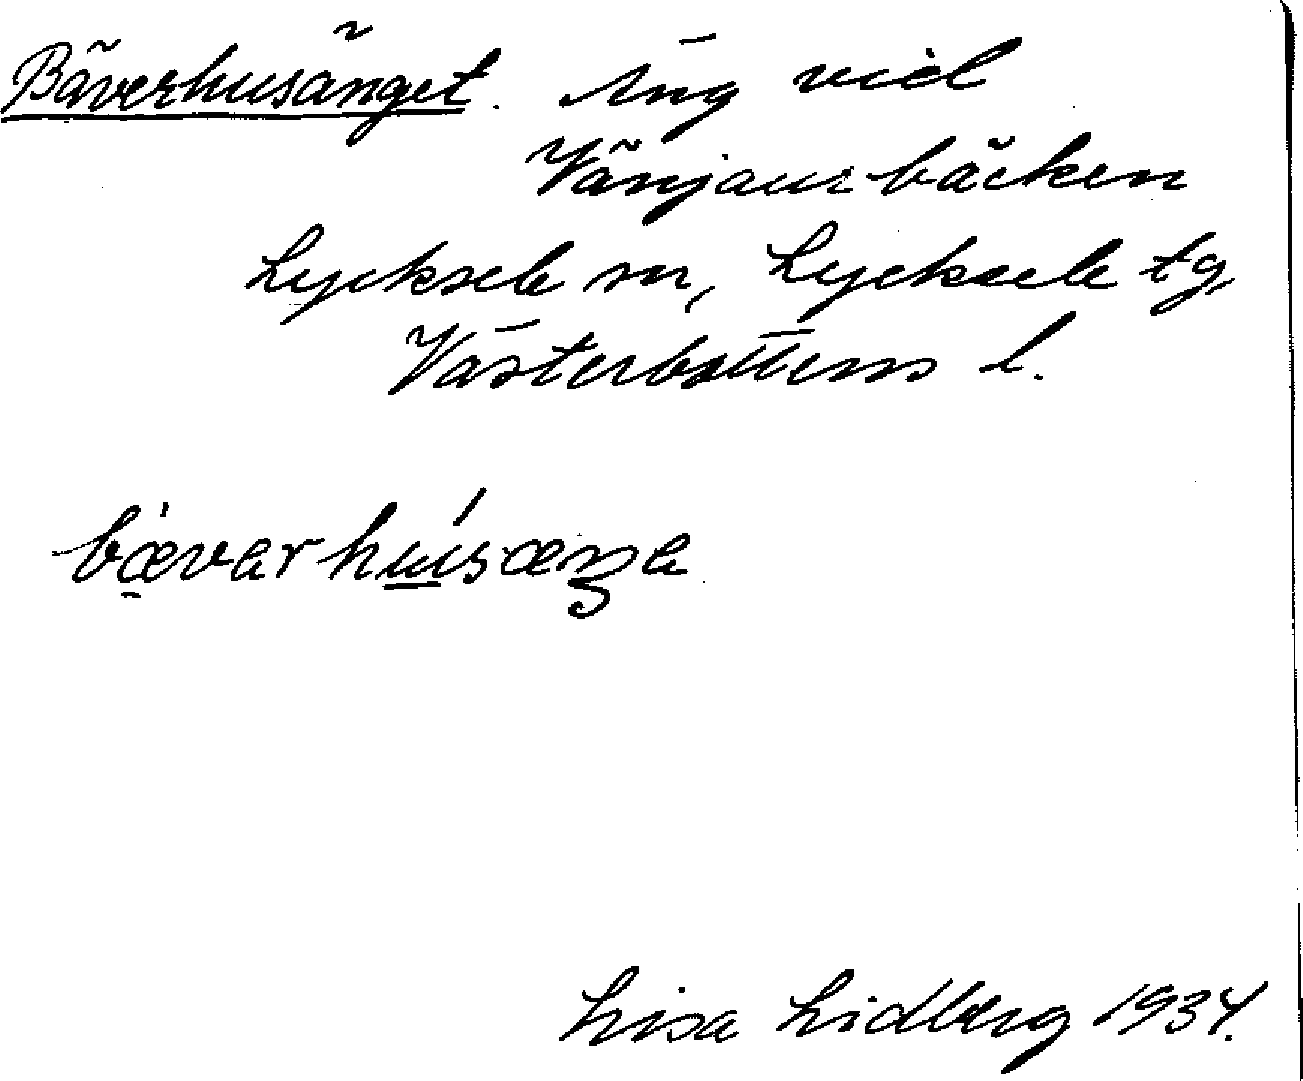 Bäverhusänget. Äng vid
Vänjaurbäcken
Lycksele sn, Lycksele tg,
Västerbottens l.
bævarhúsæŋa
Lisa Lidberg 1934.